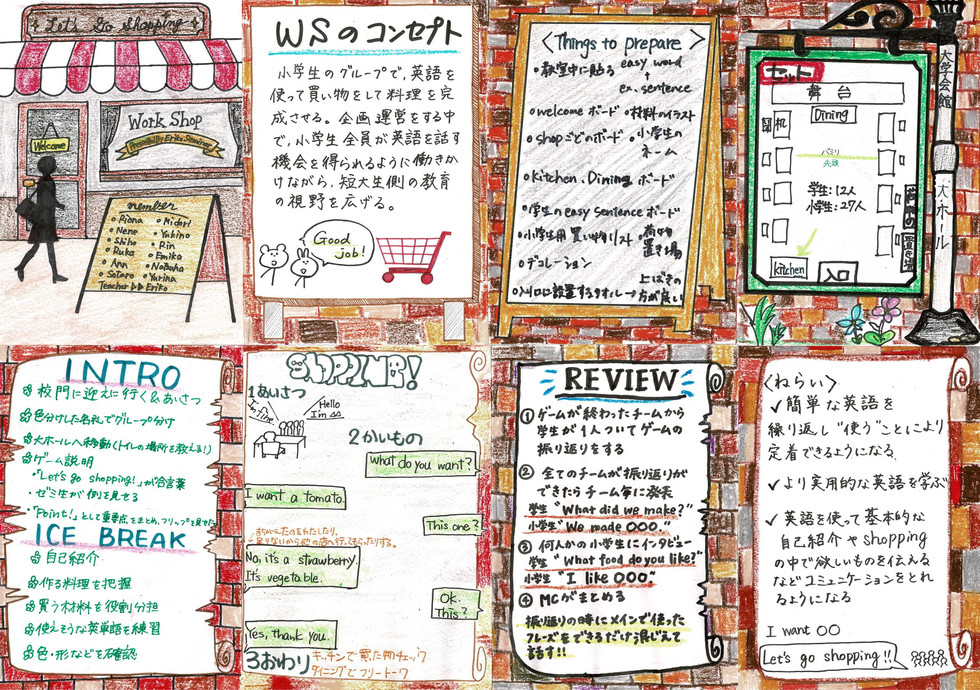 Let's Go Shopping
Work Shop
Possibility Eriko Seminar
Welcome
member
Riona
Midori
Nene
Yukino
Shiho
Rin
Ruka
Emika
Ann
Nodoka
Satoro
Yurina
Teacher ▷▷ Eriko
WSのコンセプト
小学生のグループで、英語を
使って買い物をして料理を完
成させる。企画運営をする中
で、小学生全員が英語を話す
機会を得られるように働きか
けながら、短大生側の教育
の視野を広げる。
Good
job!
<Things to prepare>
•教室中に貼る easy word
+
ex. sentence
•welcome ボード •材料のイラスト
•shopごとのボード •小学生の
ネーム
•kitchen、Diningボード
•学生のeasy sentenceボード
•小学生用 買い物リスト •荷物
置き場
•デコレーション
上ばきの
方が良い
セット
舞台
机
Dining
バミリ
先頭
学生:12人
小学生:27人
kitchen
入口
大学会館
大ホール
INTRO
校門に迎えに行く&あいさつ
色分けした名札でグループ分け
大ホールへ移動(トイレの場所を教える!)
ゲーム説明
・「Let's go shopping!」が合言葉
・ゼミ生が例を見せる
・「Point!」として重要点をまとめ、フリップを見せた
ICE BREAK
自己紹介
作る料理を把握
買う材料を役割分担
使えそうな英単語を練習
色・形などを確認
SHOPPING!
1あいさつ
I'm fine
Hello
I'm △△
2かいもの
What do you want?
I want a tomato.
This one?
No, it's a strawberry.
It's vegetable.
OK.
This?
Yes, thank you.
3おわり
キッチンで買た物チェック
ダイニングでフリートーク
REVIEW
① ゲームが終わったチームから
学生が1人ついてゲームの
振り返りをする
② 全てのチームが振り返りが
できたらチーム毎に発表
学生 "What did we make?"
小学生 "We made ○○○."
③ 何人かの小学生にインタビュー
学生 "What food do you like?"
小学生 "I like ○○○"
④ MCがまとめる
振り返りの時にメインで使った
フレーズをできるだけ混じえて
話す!!
<ねらい>
✓簡単な英語を
繰り返し"使う"ことにより
定着できるようになる
✓より実用的な英語を学ぶ
✓英語を使って基本的な
自己紹介やshopping
の中で欲しいものを伝える
などコミュニケーションをとれ
るようになる
I want ○○
Let's go shopping!!